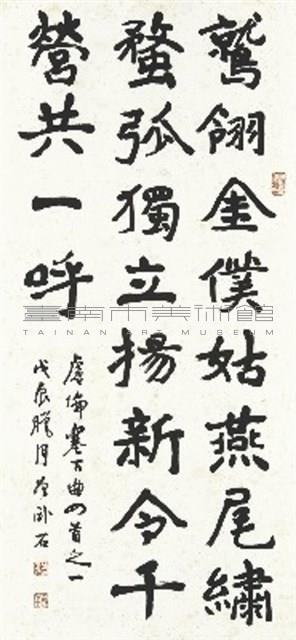 鷲翎金僕姑燕尾繡
蝥弧獨立揚新令千
營共一呼
盧倫塞下曲四首之一
戊辰臘月
臺南市美術館
TAINAN ART MUSEUM